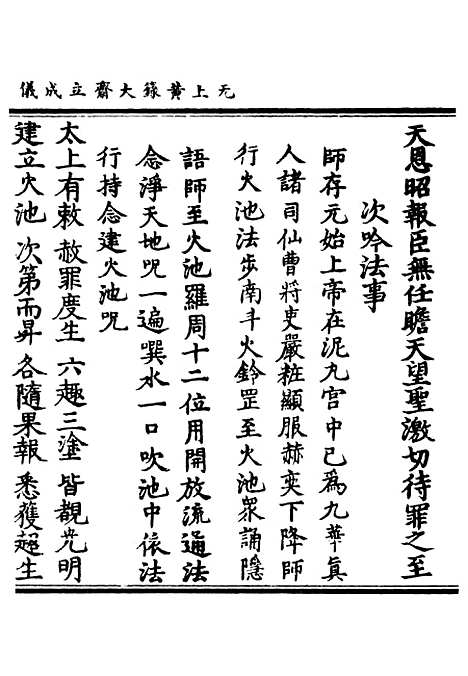 无上黄籙大齋立成儀
天恩昭報臣無任瞻天望聖激切待罪之至
次吟法事
師存元始上帝在泥九宫中已為九華真
人諸司仙曹將吏嚴粧顯服赫奕下降師
行火池法步南斗火鈴罡至火池衆誦隱
語師至火池羅周十二位用開放流通法
念淨天地呪一遍噀水一口吹池中依法
行持念建火池呪
太上有敕 赦罪度生 六趣三塗 皆覩光明
建立火池 次第而昇 各隨果報 悉獲超生